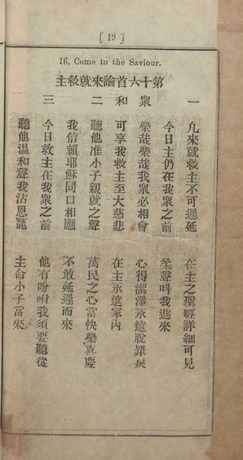 [ 19 ]
16. Come to the Saviour.
第十六首論來就救主
一 凡來就救主不可遲延 在主之聖經詳細可見
今日主仍在我衆之前 柔聲叫我進來
衆 榮哉榮哉我衆必相會 心得潔淨永遠脫罪戾
和 可享我救主至大慈悲 在主永遠家內
二 聽他准小子親就之聲 萬民之心當快樂喜慶
我信賴耶穌同口相願 不敢延遲而來
三 今日救主在我衆之前 他有吩咐我須要聽從
聽他溫和聲我沾恩寵 主命小子當來